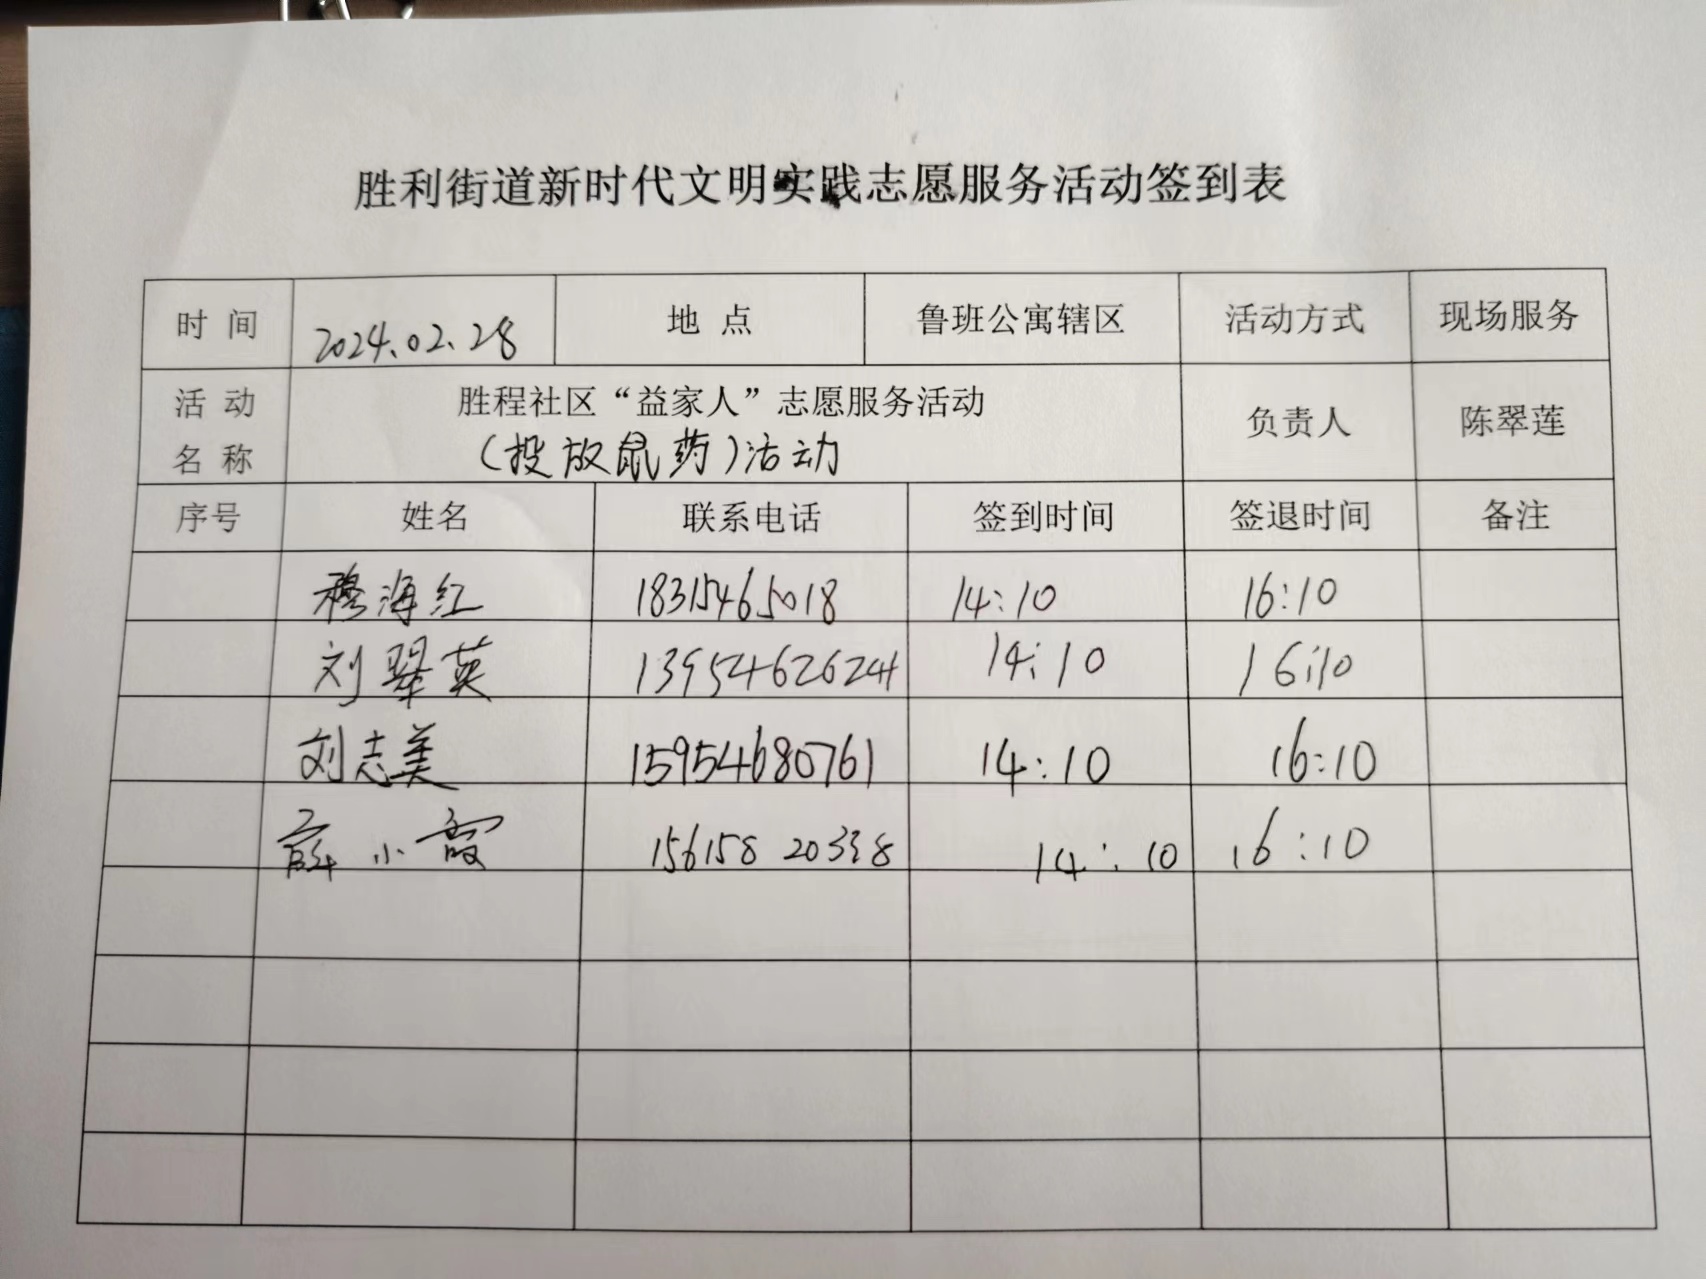 胜利街道新时代文明实践志愿服务活动签到表
时 间 2024.02.28 地 点 鲁班公寓辖区 活动方式 现场服务
活 动 名 称 胜程社区“益家人”志愿服务活动 负责人 陈翠莲
(投放鼠药)活动
序号 姓名 联系电话 签到时间 签退时间 备注
穆海红 18315465018 14:10 16:10
刘翠英 13954626241 14:10 16:10
刘志美 15954680761 14:10 16:10
薛小霞 156158 20338 14:10 16:10